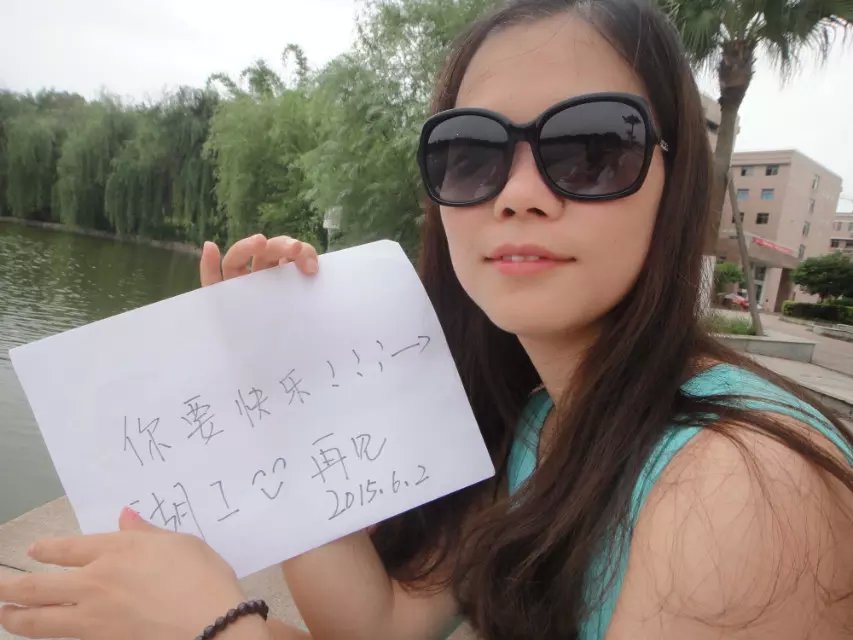 你要快乐！！！→
湖工 再见
2015.6.2